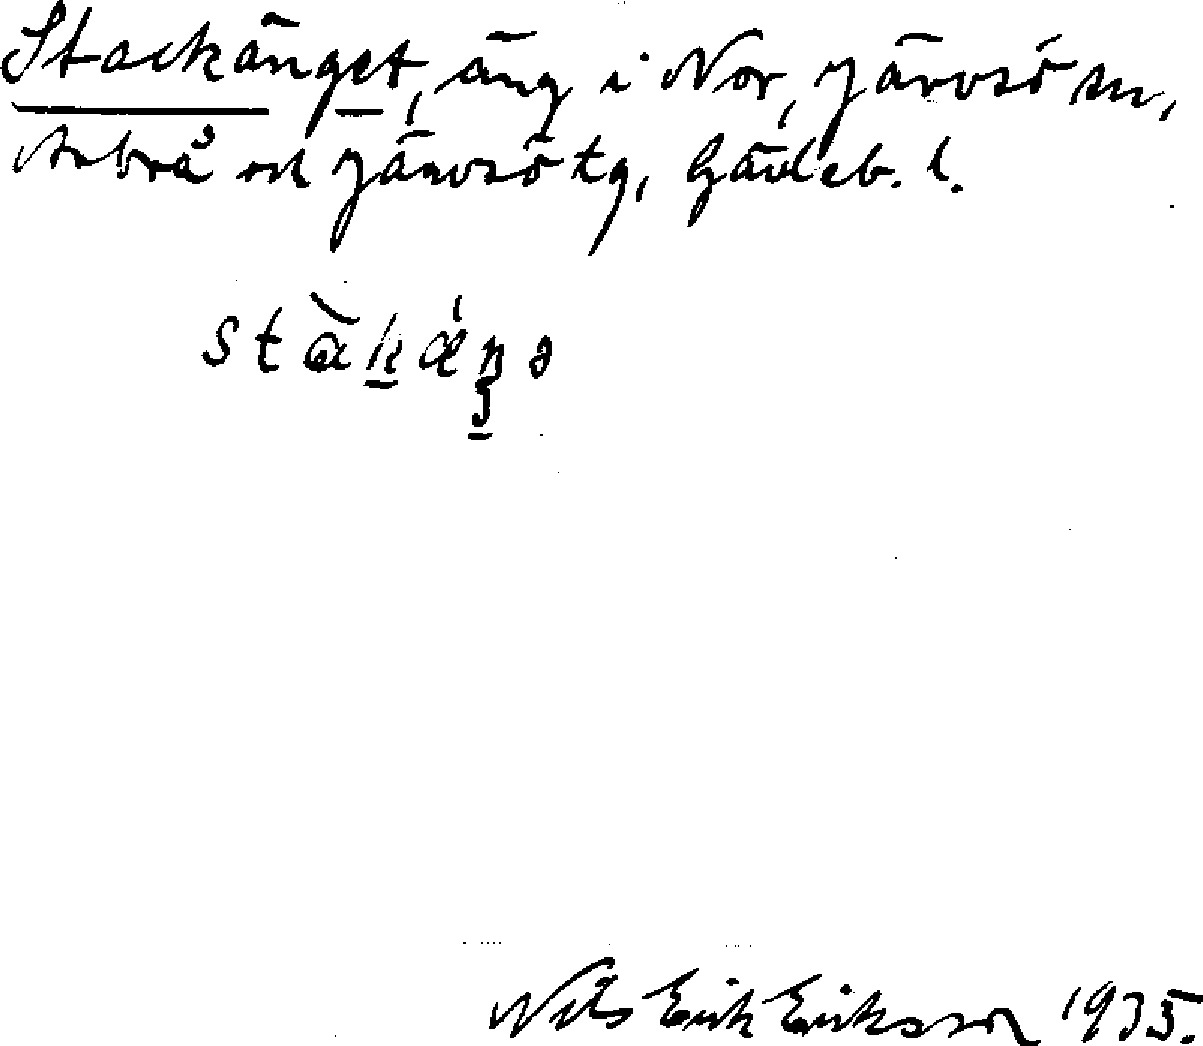 Stackänget, äng i Nor, Järvsö sn,
Arbrå och Järvsö tg, Gävleb. l.
stàkǽŋə
Nils Erik Eriksson 1935.